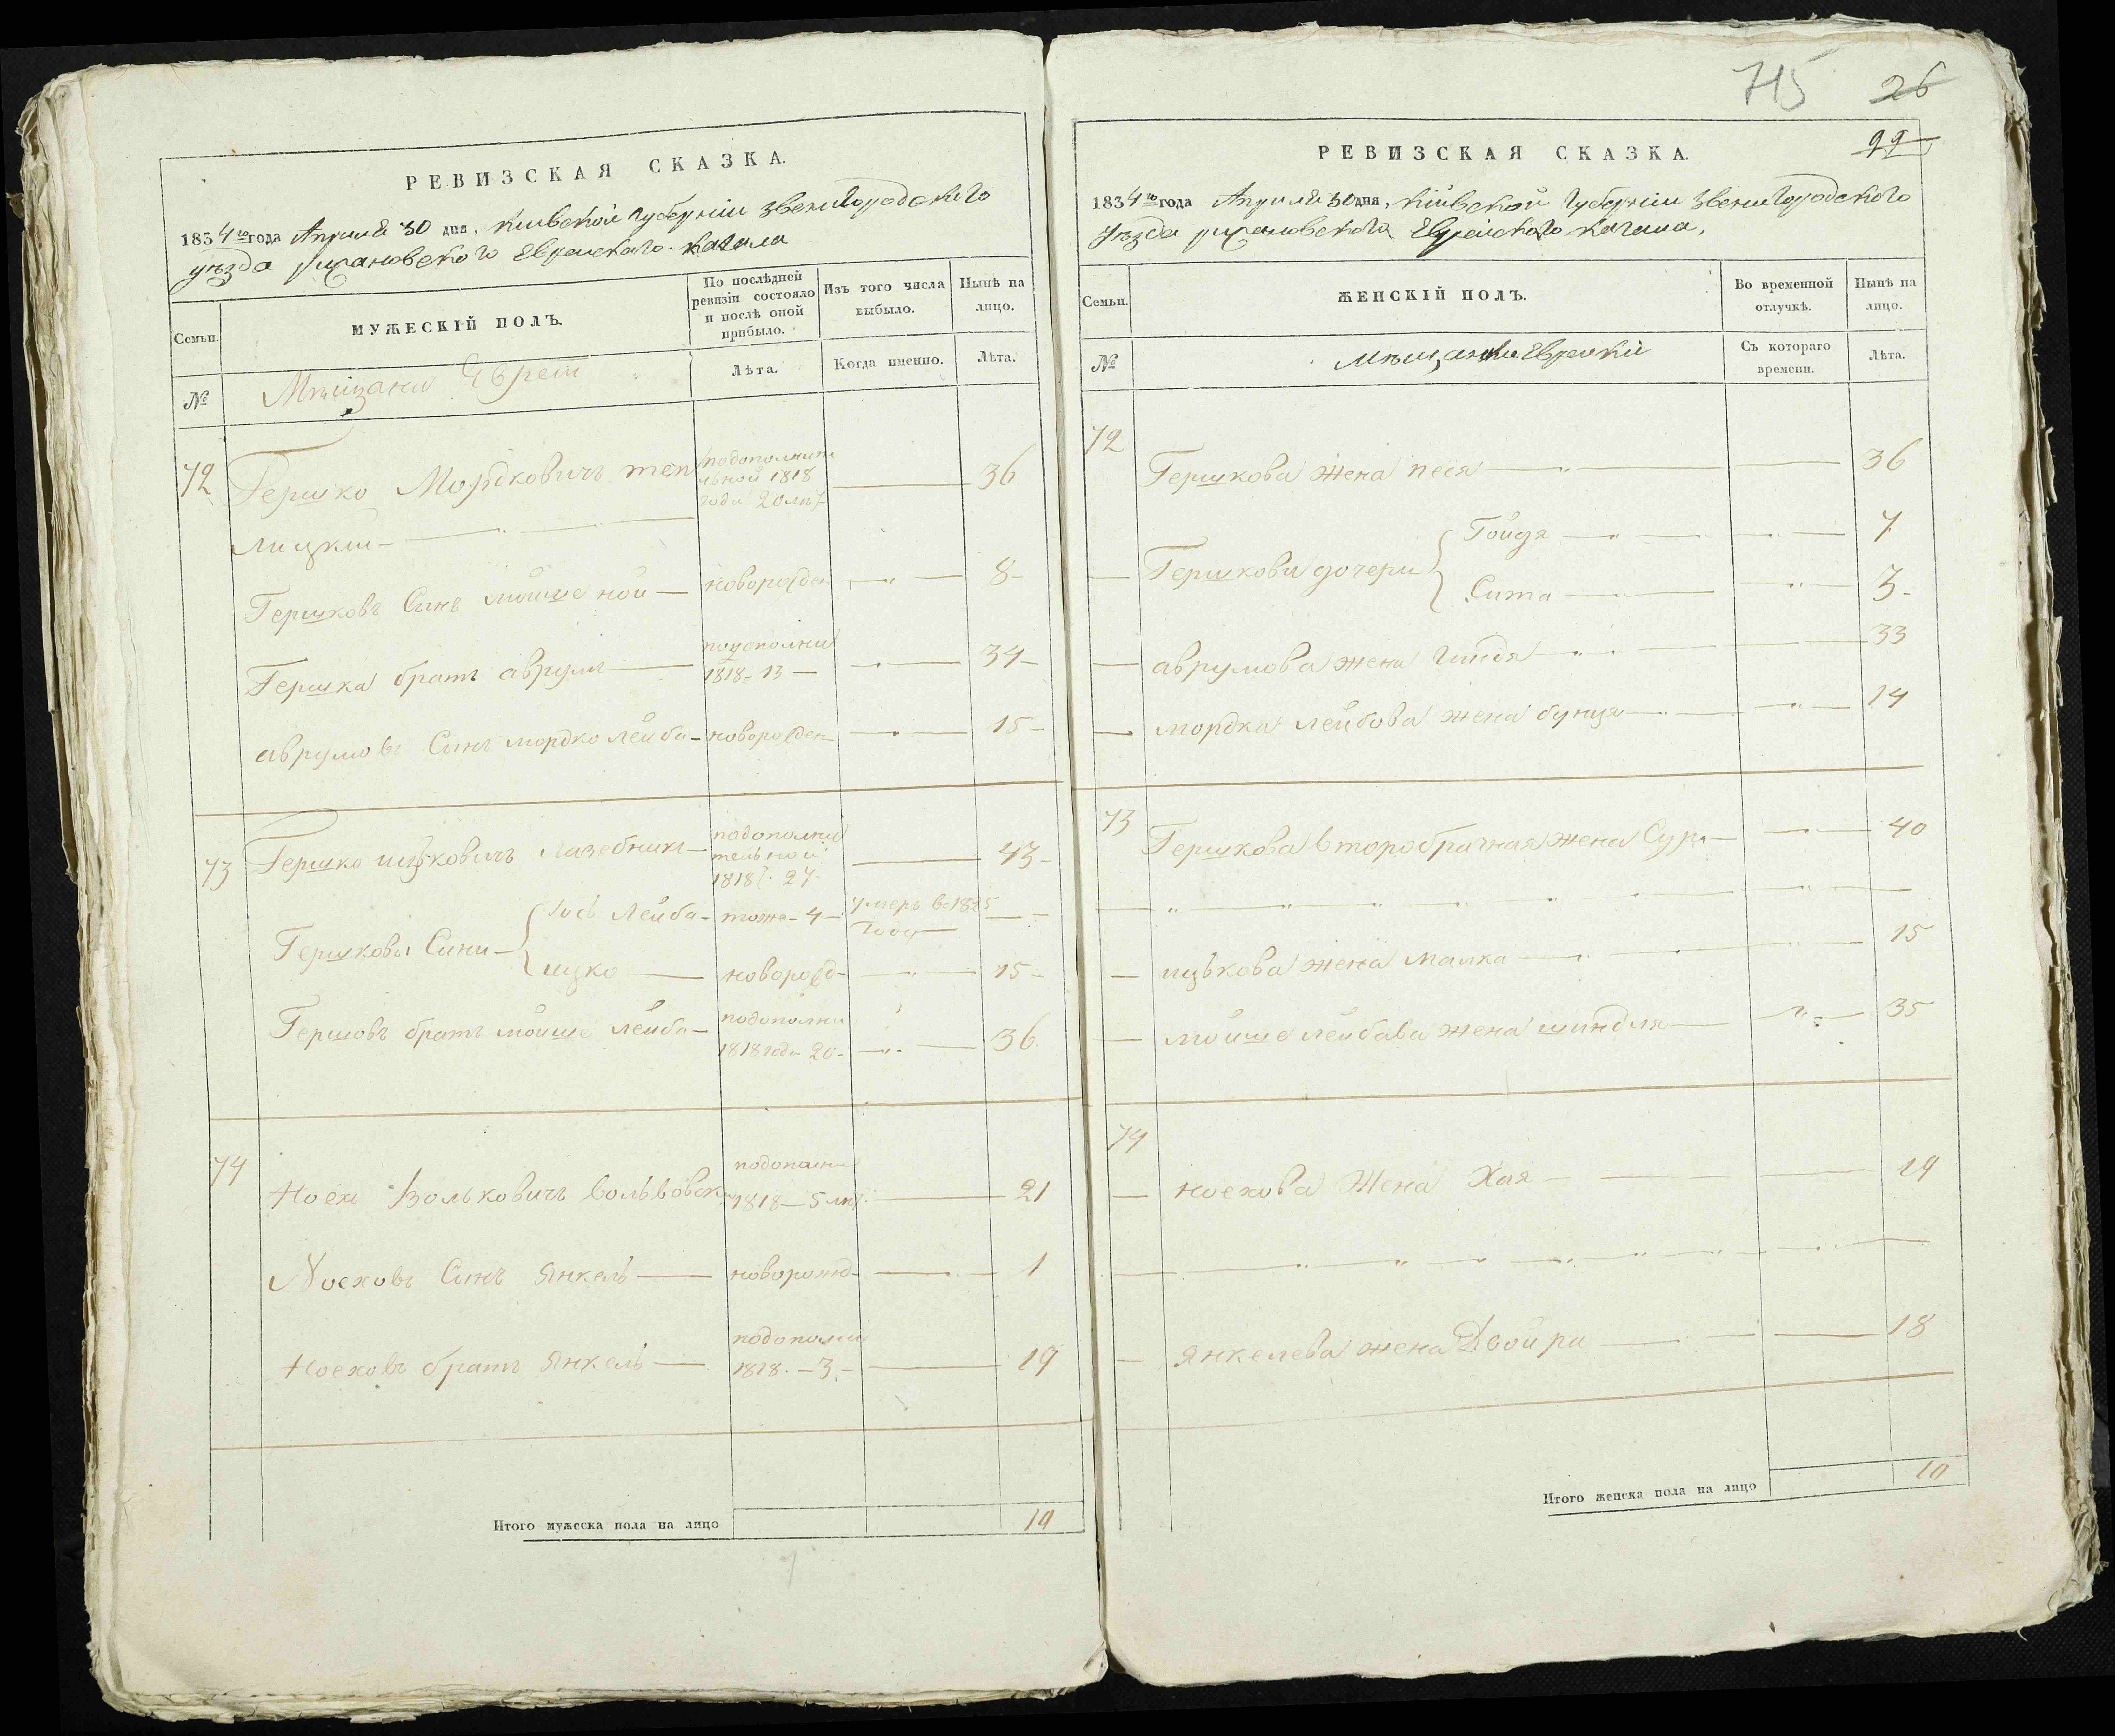 РЕВИЗСКАЯ СКАЗКА.
1834го года Апреля 30 дня, Киевской Губернии Звенигородского
уезда рыжановского Еврейского кагала
Семьи.
МУЖЕСКІЙ ПОЛЪ.
По послѣдней ревизіи состояло и послѣ оной прибыло.
Изъ того числа выбыло.
Нынѣ на лицо.
№
Мещани Евреи
Лѣта.
Когда именно.
Лѣта.
72 Гершко Мордковичъ теп подополните льной 1818 года 20 лѣт 36
лицкий
Гершковъ Синъ мойше ной новорожден 8
Гершка братъ аврумъ подополни 1818 - 13 34
аврумовъ Синъ мордко лейба новорожден 15
73 Гершко ицковичъ лазебникъ подополни тельной 1818 г. 27 43
Гершкови Сини
лейба тоже 4 умеръ в 1825 году
ицко новорожд 15
Гершовъ братъ мойше лейба подополни 1818 года 20 36
74 Ноех Волькович Вольвовск подополни 1818 - 5 лѣт 21
Ноеховъ Синъ Янкель новорожд 1
Ноеховъ братъ Янкель подополни 1818 - 3 19
Итого мужеска пола на лицо 10
715 26
РЕВИЗСКАЯ СКАЗКА.
1834го года Апреля 30 дня, Киевской Губернии Звенигородского
Уезда рыжановского Еврейского кагала,
Семьи.
ЖЕНСКІЙ ПОЛЪ.
Во временной отлучкѣ.
Нынѣ на лицо.
№
Мещанки Еврейки
Съ котораго времени.
Лѣта.
72
Гершкова жена песя 36
Гершкови дочери
Гойдя 7
Сита 3
аврумова жена Гиндя 33
мордка лейбова жена бунця 14
73
Гершкова второбрачная жена Сура 40
ицькова жена малка 15
мойше лейбава жена шиндля 35
74
ноехова Жена Хая 19
янкелева жена Двойра 18
Итого женска пола на лицо 10